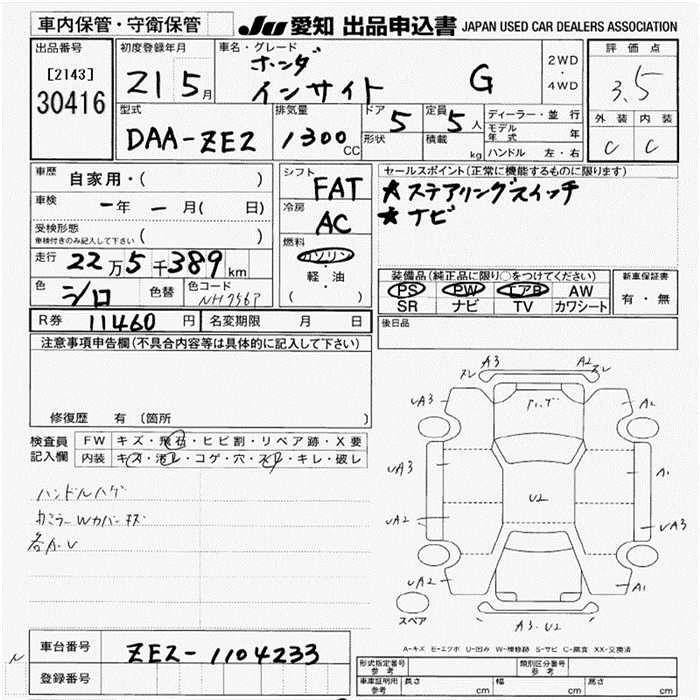 車内保管・守衛保管 JU 愛知 出品申込書 JAPAN USED CAR DEALERS ASSOCIATION
出品番号 初度登録年月 車名・グレード 評価点
[2143] 30416 21 5月 ホンダ インサイト G 2WD・4WD 3.5
型式 排気量 ドア 定員 ディーラー・並行 外装 内装
DAA-ZE2 1300CC 5 5人 モデル年式 年 C C
形状 積載 kg ハンドル 左・右
車歴 自家用・( ) シフト FAT セールスポイント(正常に機能するものに限ります)
車検 一年 一月( 日) 冷房 AC ★ステアリングスイッチ
★ナビ
受検形態 ( )
車検付きのみ記入して下さい
走行 22万5千389km 燃料 ガソリン・軽・油 ( )
装備品(純正品に限り○をつけてください) 新車保証書
色 シロ 色替 色コード NH756P PS PW エアB AW 有・無
SR ナビ TV カワシート
R券 11460円 名変期限 月 日 後日品
注意事項申告欄(不具合内容等は具体的に記入して下さい)
修復歴 有 〔箇所 〕
検査員記入欄 FW キズ・飛石・ヒビ割・リペア跡・X要
内装 キズ・汚レ・コゲ・穴・スレ・キレ・破レ
ハンドルハゲ
カバー
A3 A2
UA3 A2
UA3 A1
U2
UA2 UA3
UA2 A1
スペア A3.U2
A-キズ E-エクボ U-凹み W-補修跡 S-サビ C-腐食 XX-交換済
車台番号 ZE2-1104233
登録番号
形式指定番号 参考 類別区分番号 参考
車庫証明用 参考 長さ cm 幅 cm 高さ cm